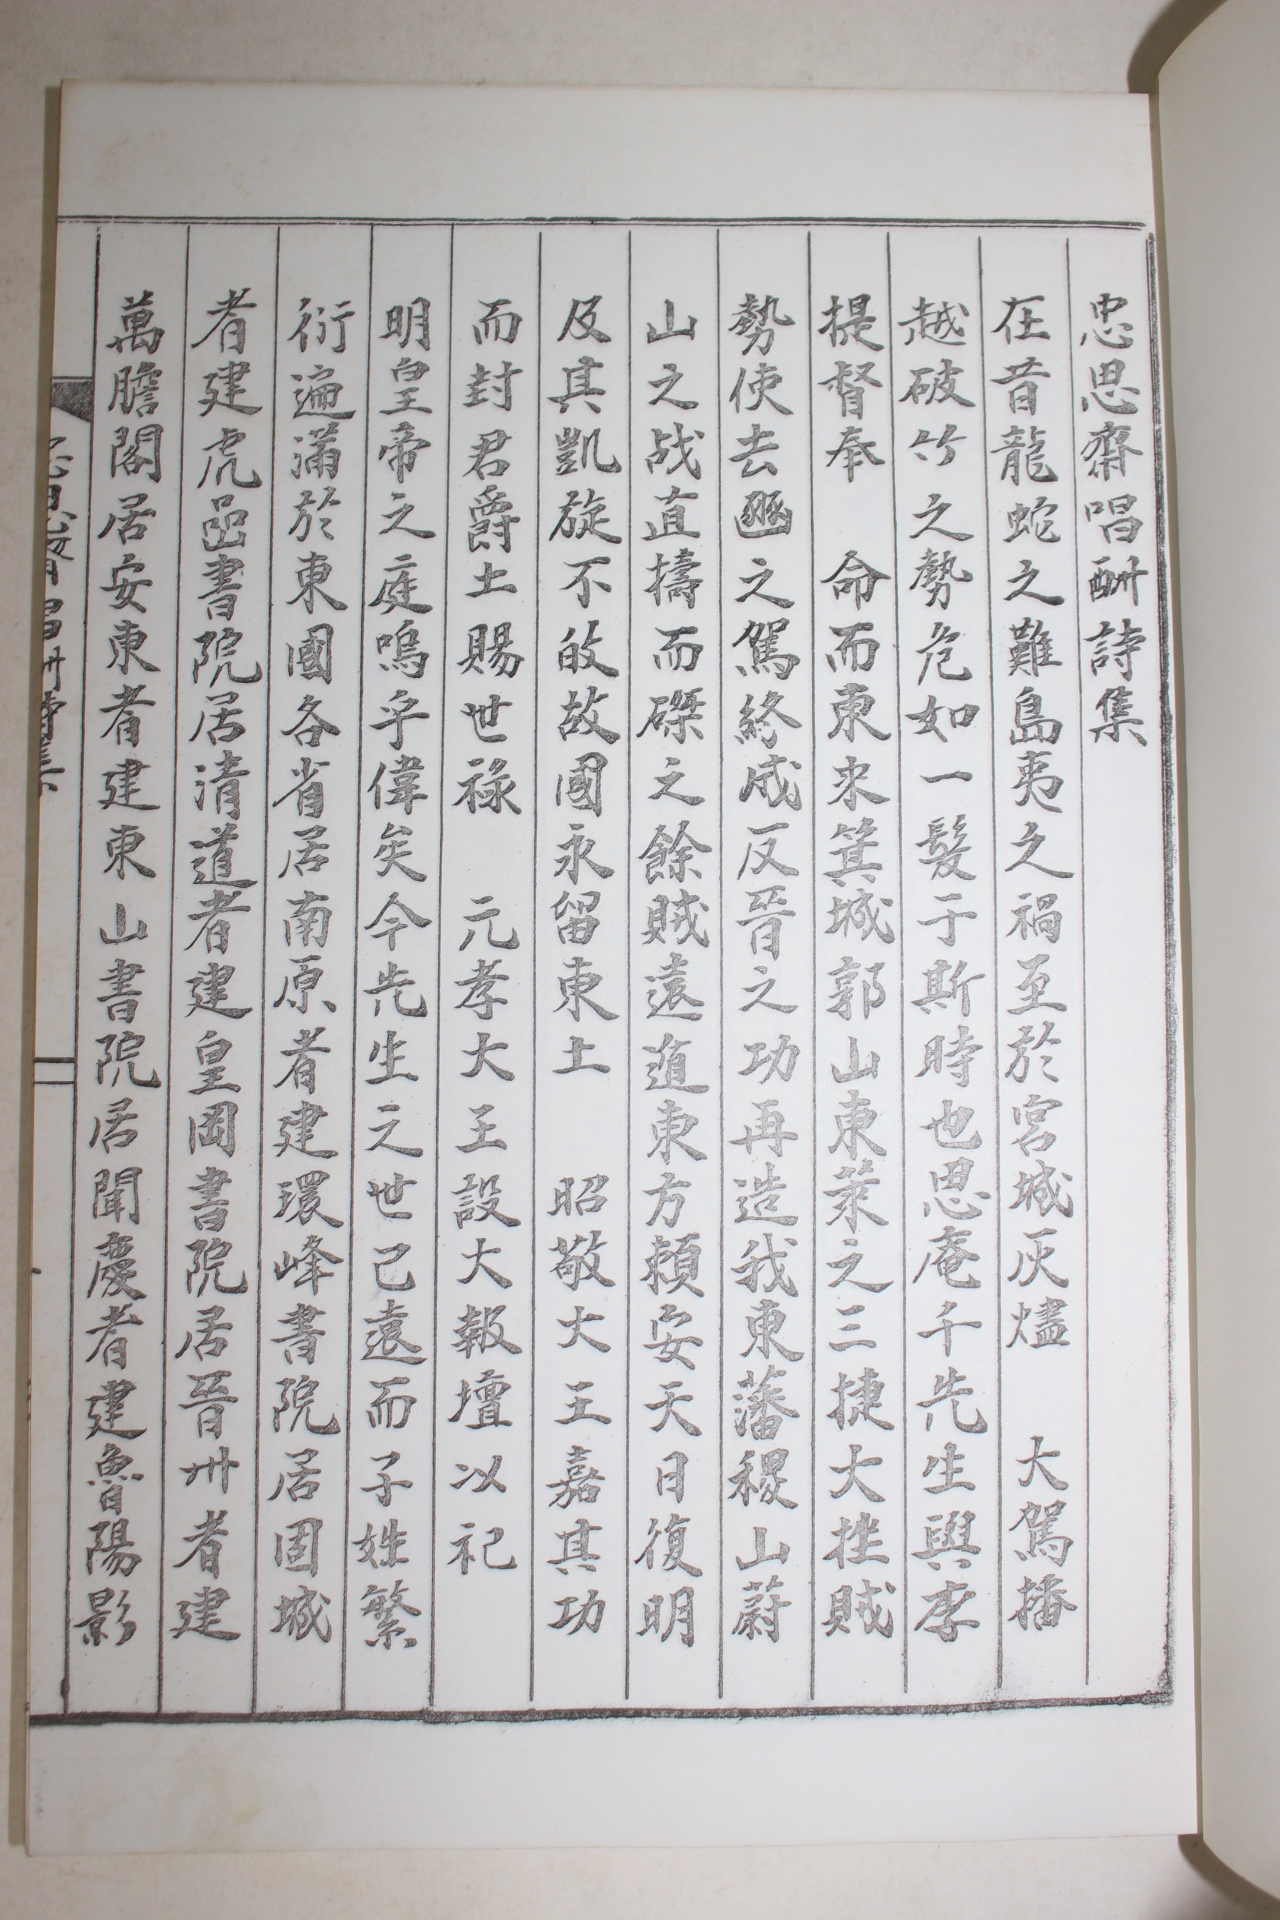 忠思齋唱酬詩集
在昔龍蛇之難島夷之禍至於宮城灰燼 大駕播
越破竹之勢危如一髮于斯時也思庵千先生與李
提督奉 命而東來箕城郭山東萊之三捷大挫賊
勢使去豳之駕終成反晉之功再造我東藩稷山蔚
山之战直擣而磔之餘賊遠遁東方賴安天日復明
及其凱旋不敀故國永留東土 昭敬大王嘉其功
而封君爵土賜世祿 元孝大王設大報壇以祀
明皇帝之庭嗚乎偉矣今先生之世已遠而子姓繁
衍遍滿於東國各省居南原者建環峰書院居固城
者建虎嵒書院居清道者建皇岡書院居晉州者建
萬膽閣居安東者建東山書院居聞慶者建魯陽影